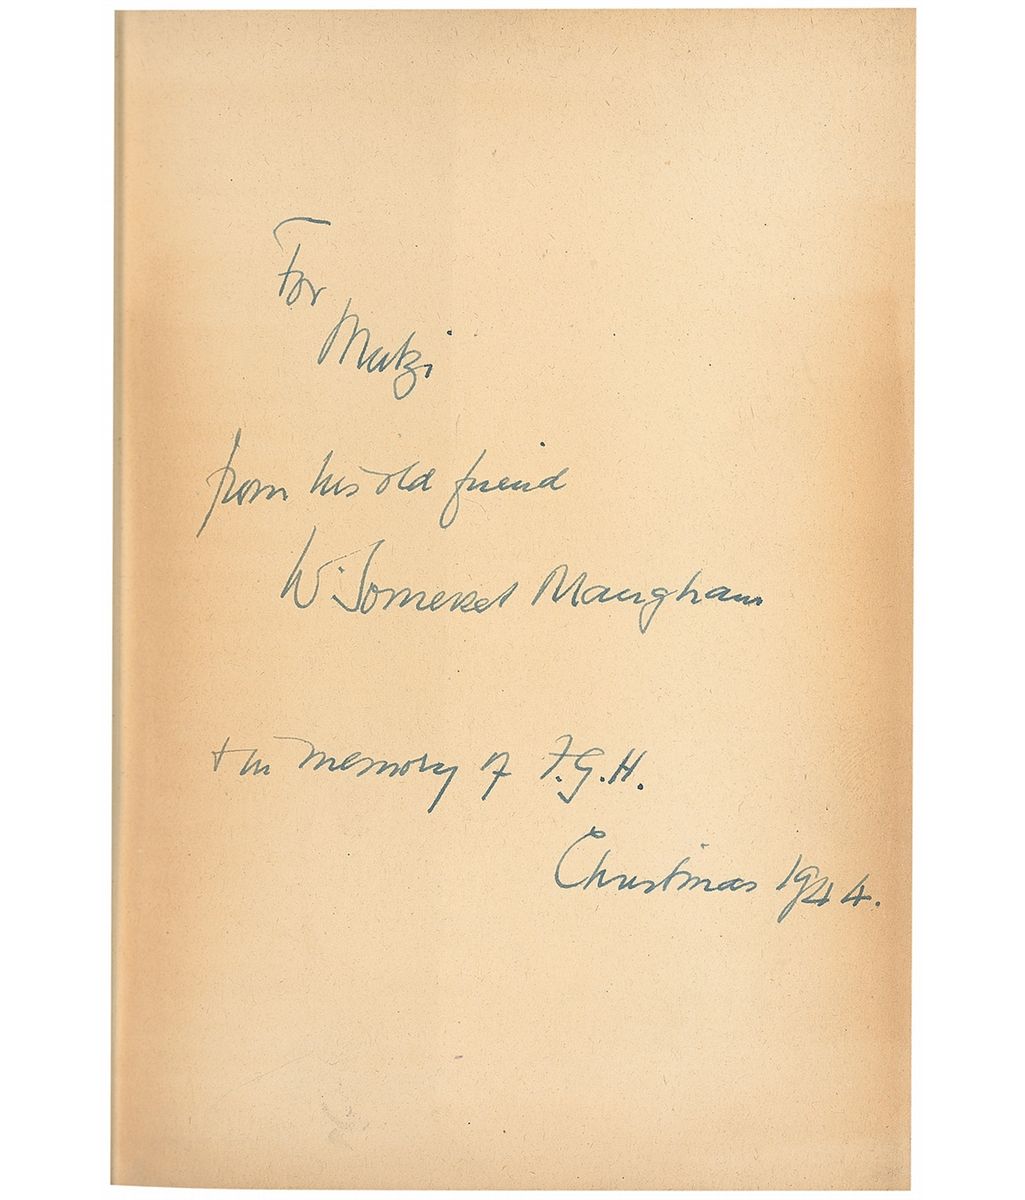 For
Mutzi
from his old friend
W. Somerset Maugham
+ in memory of F.G.H.
Christmas 1944.